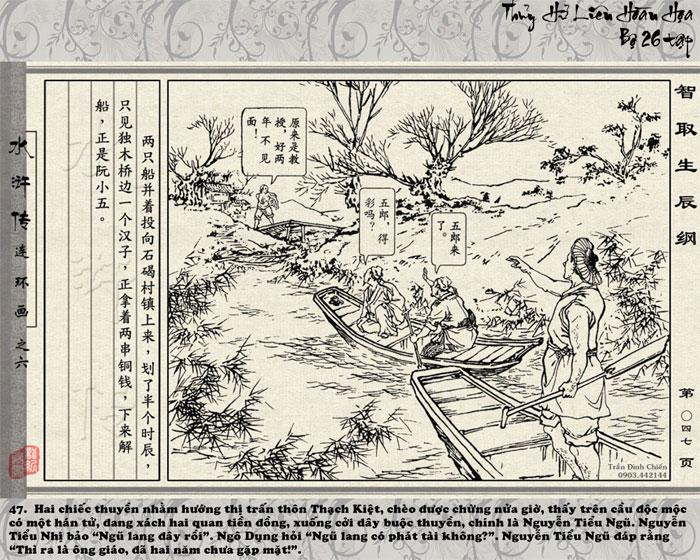 Thủy Hử Liên Hoàn Họa
Bộ 26 tập
智取生辰纲
第〇四七页
水浒传连环画之六
两只船并着投向石碣村镇上来，划了半个时辰，
只见独木桥边一个汉子，正拿着两串铜钱，下来解
船，正是阮小五。
原来是教
授，好两
年不见
面！
五郎，得
彩吗？
五郎来
了。
Trần Đình Chiến
0903.442144
47. Hai chiếc thuyền nhằm hướng thị trấn thôn Thạch Kiệt, chèo được chừng nửa giờ, thấy trên cầu độc mộc
có một hán tử, đang xách hai quan tiền đồng, xuống cởi dây buộc thuyền, chính là Nguyễn Tiểu Ngũ. Nguyễn
Tiểu Nhị bảo “Ngũ lang đây rồi”. Ngô Dụng hỏi “Ngũ lang có phát tài không?”. Nguyễn Tiểu Ngũ đáp rằng
“Thì ra là ông giáo, đã hai năm chưa gặp mặt!”.